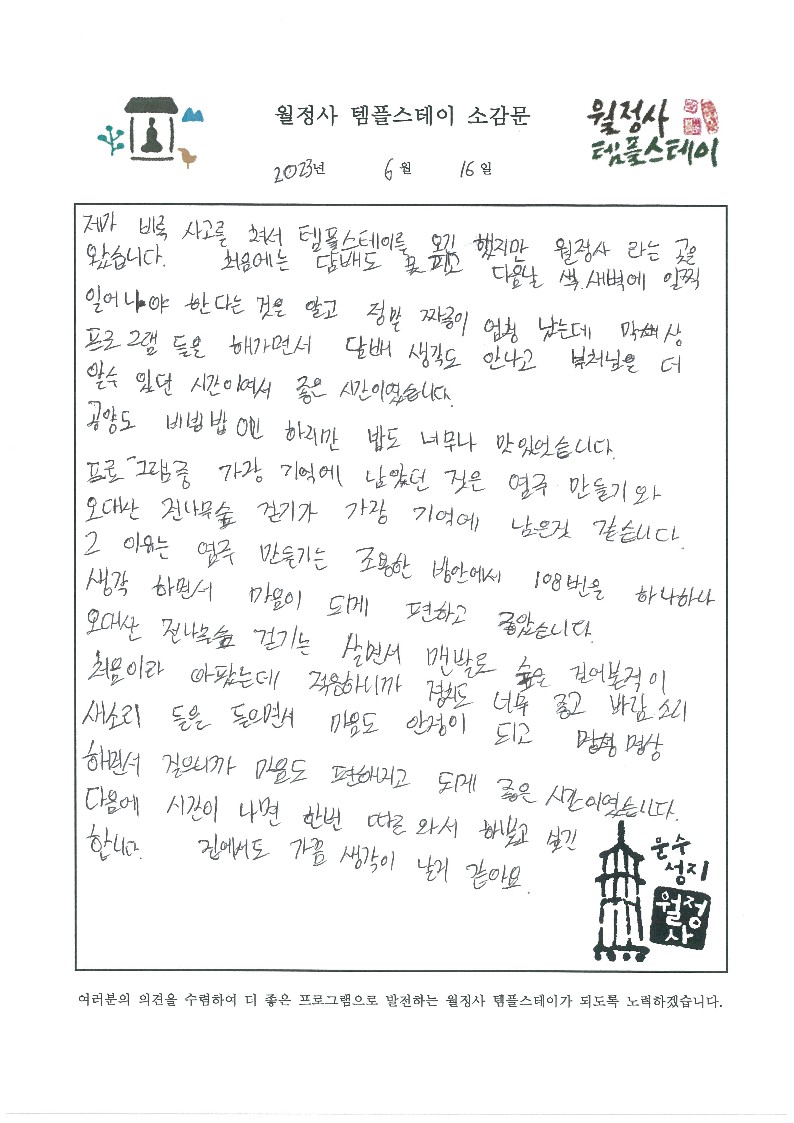 월정사 템플스테이 소감문
월정사
템플스테이
2023년 6월 16일
제가 비록 사고를 쳐서 템플스테이를 오긴 했지만 월정사 라는 곳을
왔습니다. 처음에는 담배도 못 피고 다음날 새벽에 일찍
일어나야 한다는 것을 알고 정말 짜증이 엄청 났는데 막상
프로그램 들을 해가면서 담배 생각도 안나고 부처님을 더
알수 있던 시간이여서 좋은 시간이였습니다.
공양도 비빔밥이긴 하지만 밥도 너무나 맛있었습니다.
프로그램중 가장 기억에 남았던 것은 염주 만들기와
오대산 전나무숲 걷기가 가장 기억에 남은것 같습니다.
그 이유는 염주 만들기는 조용한 방안에서 108번을 하나하나
생각 하면서 마음이 되게 편하고 좋았습니다.
오대산 전나무숲 걷기는 살면서 맨발로 숲을 걸어본적이
처음이라 아팠는데 적응하니까 경치도 너무 좋고 바람 소리
새소리 들을 들으면서 마음도 안정이 되고 명상
하면서 걸으니까 마음도 편해지고 되게 좋은 시간이였습니다.
다음에 시간이 나면 한번 따로 와서 해보고 싶긴
합니다. 집에서도 가끔 생각이 날거 같아요.
문수
성지
월정
사
여러분의 의견을 수렴하여 더 좋은 프로그램으로 발전하는 월정사 템플스테이가 되도록 노력하겠습니다.